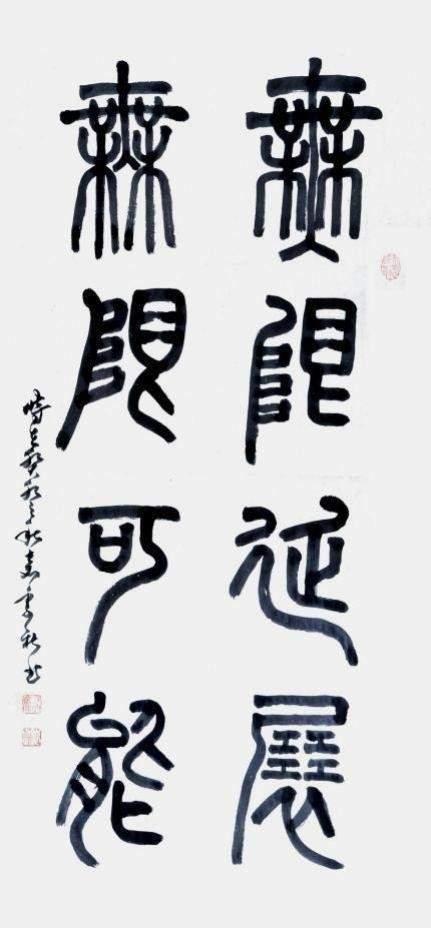 無限延展
無限可能
時在癸卯之秋